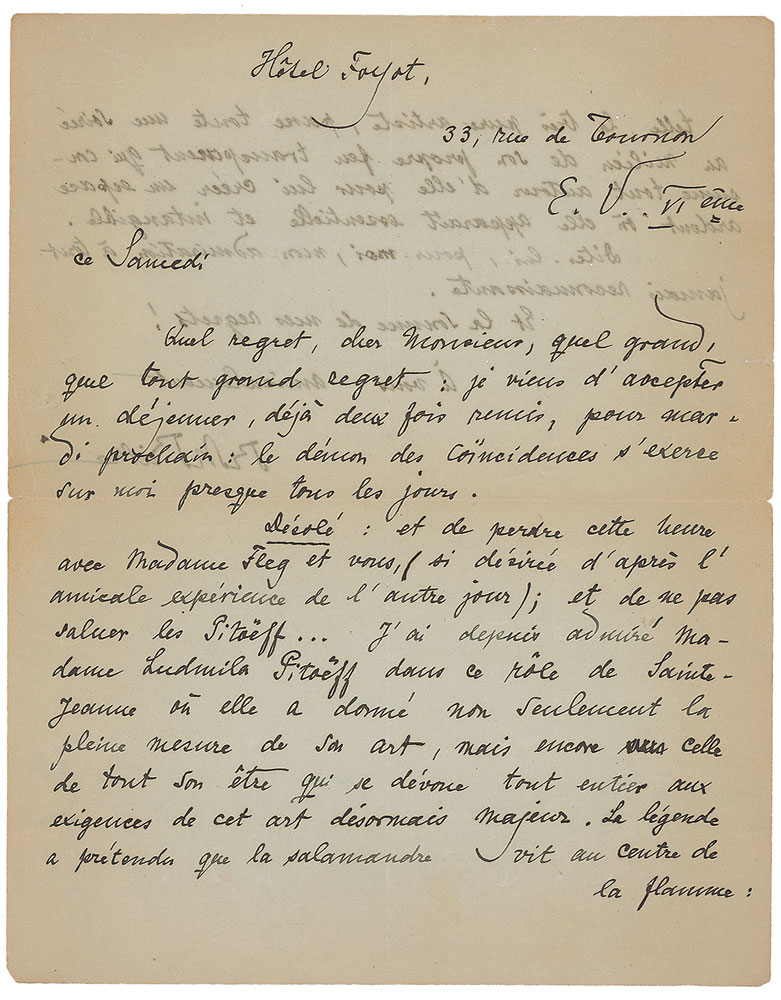 Hôtel Foyot,
33, rue de Tournon
E. V. VI ème
ce Samedi
Quel regret, cher Monsieur, quel grand,
quel tout grand regret : je viens d'accepter
un déjeuner, déjà deux fois remis, pour mar-
di prochain : le démon des Coïncidences s'exerce
sur moi presque tous les jours.
Désolé : et de perdre cette heure
avec Madame Fleg et vous, (si désirée d'après l'
amicale expérience de l'autre jour) ; et de ne pas
saluer les Pitoëff... J'ai depuis admiré Ma-
dame Ludmila Pitoëff dans ce rôle de Sainte-
Jeanne où elle a donné non seulement la
pleine mesure de son art, mais encore celle
de tout son être qui se dévoue tout entier aux
exigences de cet art désormais majeur. La légende
a prétendu que la salamandre vit au centre de
la flamme :